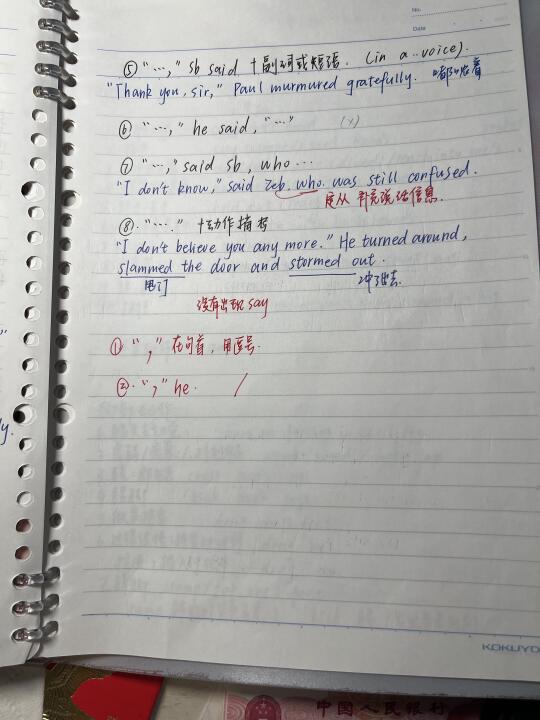 No.
Date
⑤ "…," sb said +副词或短语. (in a..voice).
"Thank you, sir," Paul murmured gratefully. 嘟哝着
⑥ "…," he said, "…" (x)
⑦ "…," said sb, who…
"I don't know," said Zeb. who was still confused.
定从 补充说话信息.
⑧. "…." +动作描写
"I don't believe you any more." He turned around,
slammed the door and stormed out.
甩门 冲了出去.
没有出现 say
① " , " 在句首, 用逗号.
②. " , " he. /
KOKUYO
中国人民银行
y.